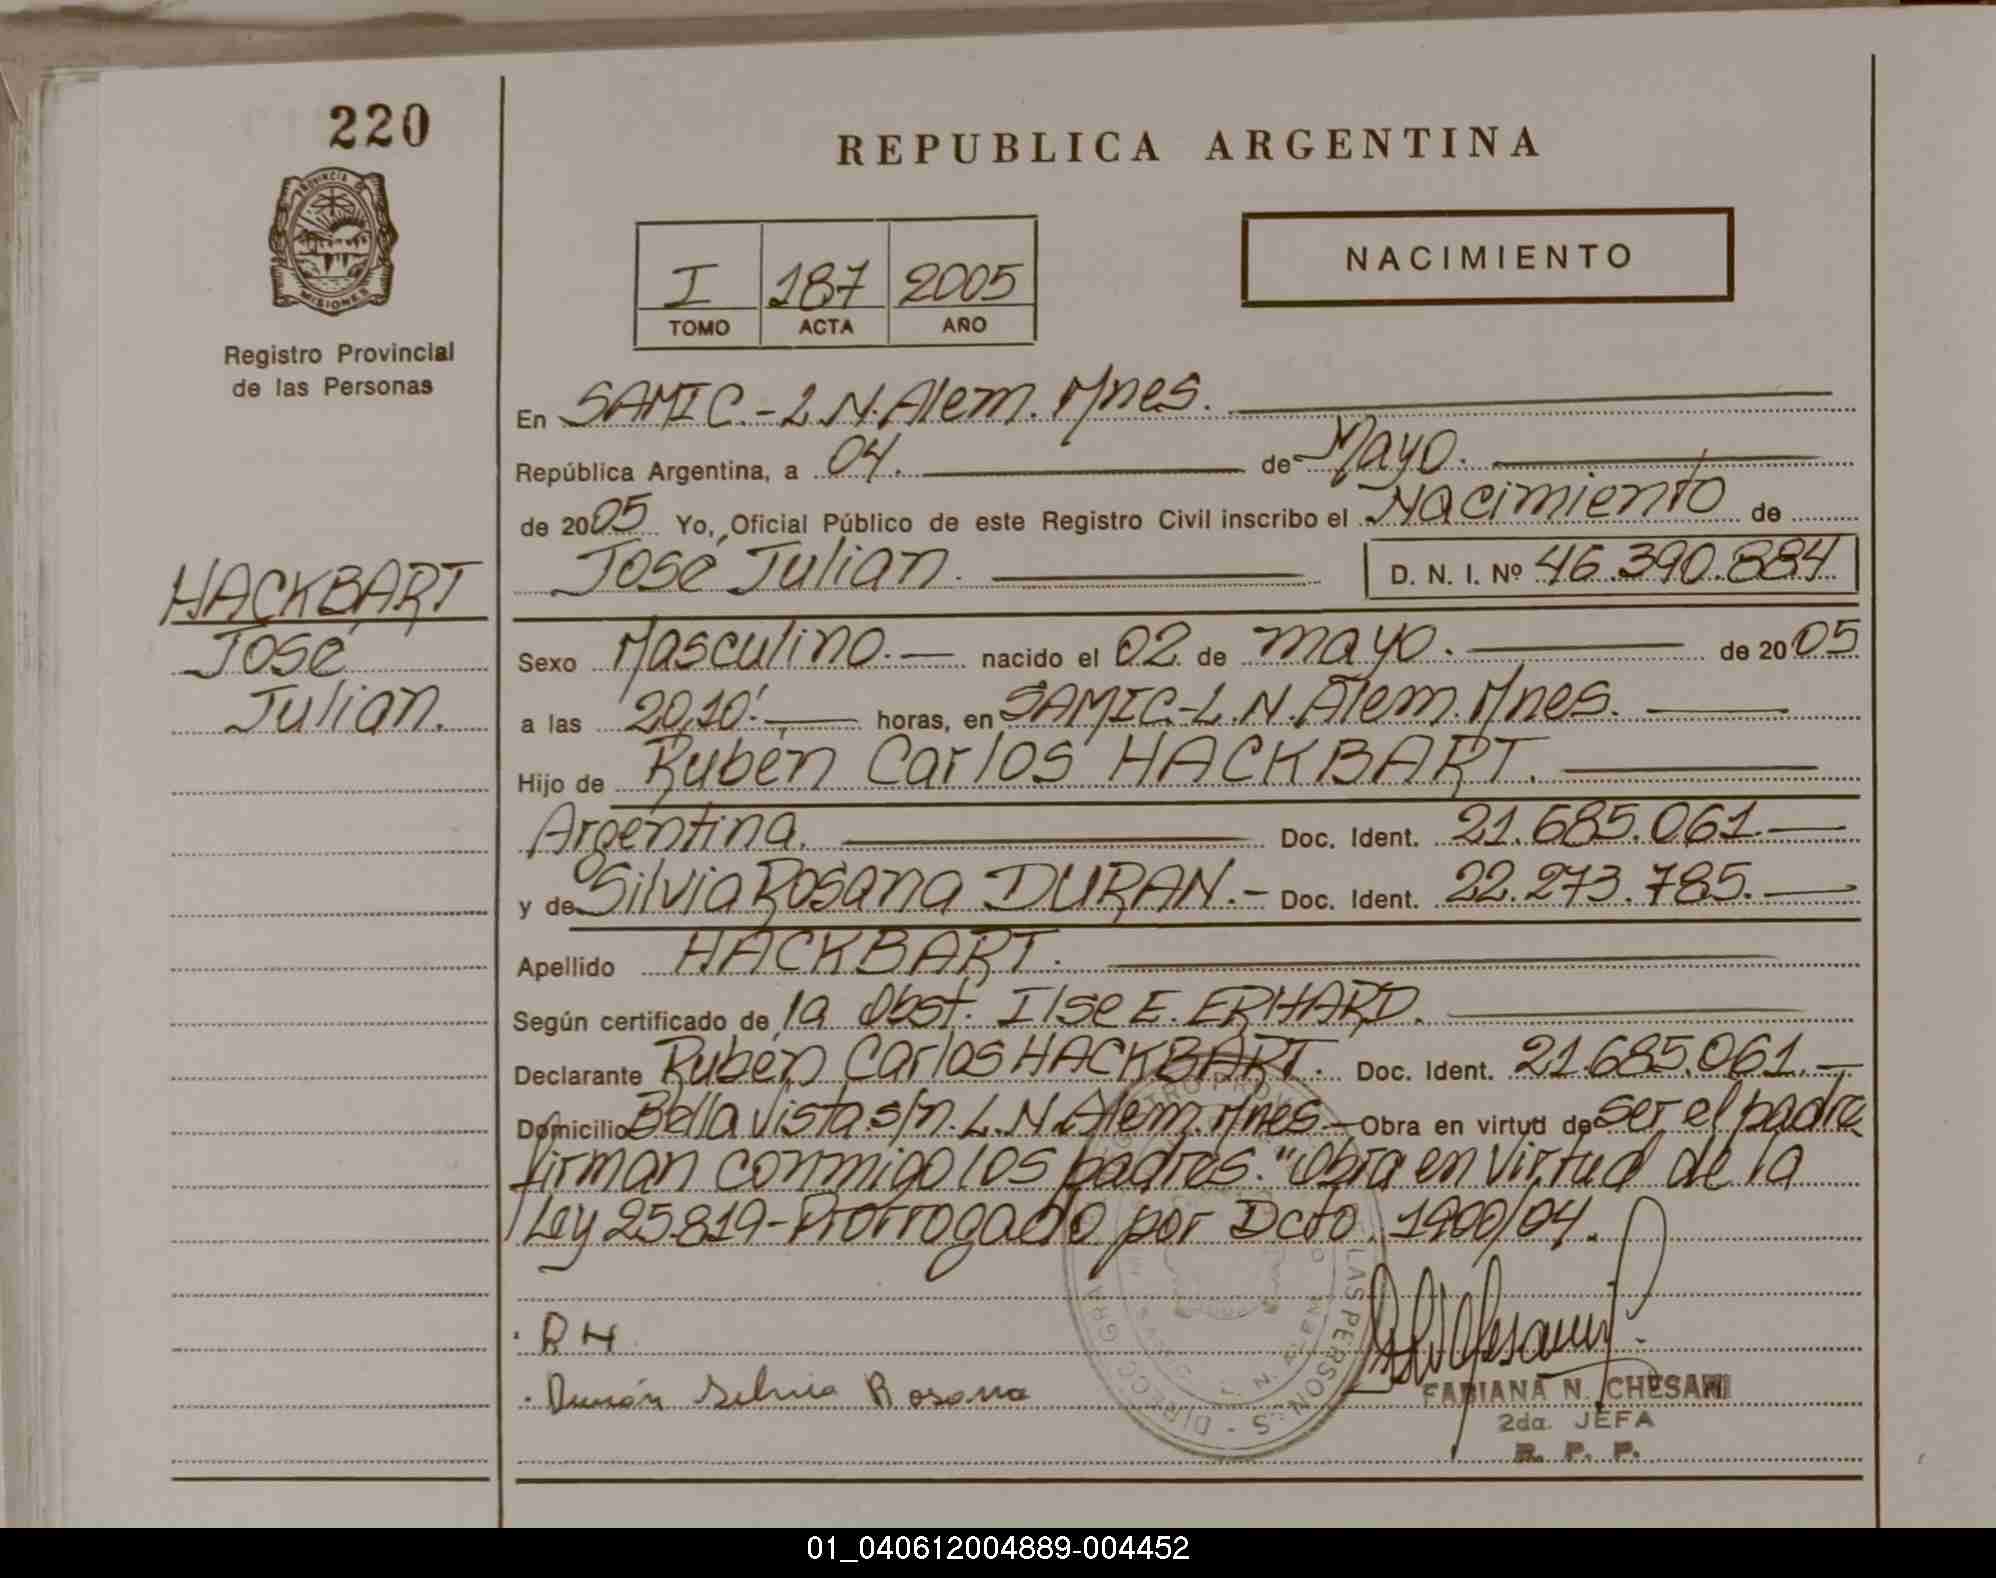 220
REPUBLICA ARGENTINA
PROVINCIA DE
MISIONES
Registro Provincial
de las Personas
I 187 2005
TOMO ACTA AÑO
NACIMIENTO
En SAMIC.-L.N.Alem.Mnes.
República Argentina, a 04. de Mayo.
de 2005 Yo, Oficial Público de este Registro Civil inscribo el Nacimiento de
José Julian. D. N. I. Nº 46.390.884
HACKBART
José
Julian.
Sexo Masculino.- nacido el 02 de mayo. de 2005
a las 20,10'. horas, en SAMIC.-L.N.Alem.Mnes.
Hijo de Rubén Carlos HACKBART.
Argentina. Doc. Ident. 21.685.061.-
y de Silvia Rosana DURAN.- Doc. Ident. 22.273.785.-
Apellido HACKBART.
Según certificado de la Obst. Ilse E. ERHARD.
Declarante Rubén Carlos HACKBART. Doc. Ident. 21.685.061.-
Domicilio Bella Vista s/n. L.N.Alem.Mnes.- Obra en virtud de ser el padre
firman conmigo los padres."Obra en virtud de la
Ley 25.819-Prorrogado por Dcto. 1900/04.
RH
Durán Silvia Rosana
FABIANA N. CHESANI
2da. JEFA
R. P. P.
01_040612004889-004452